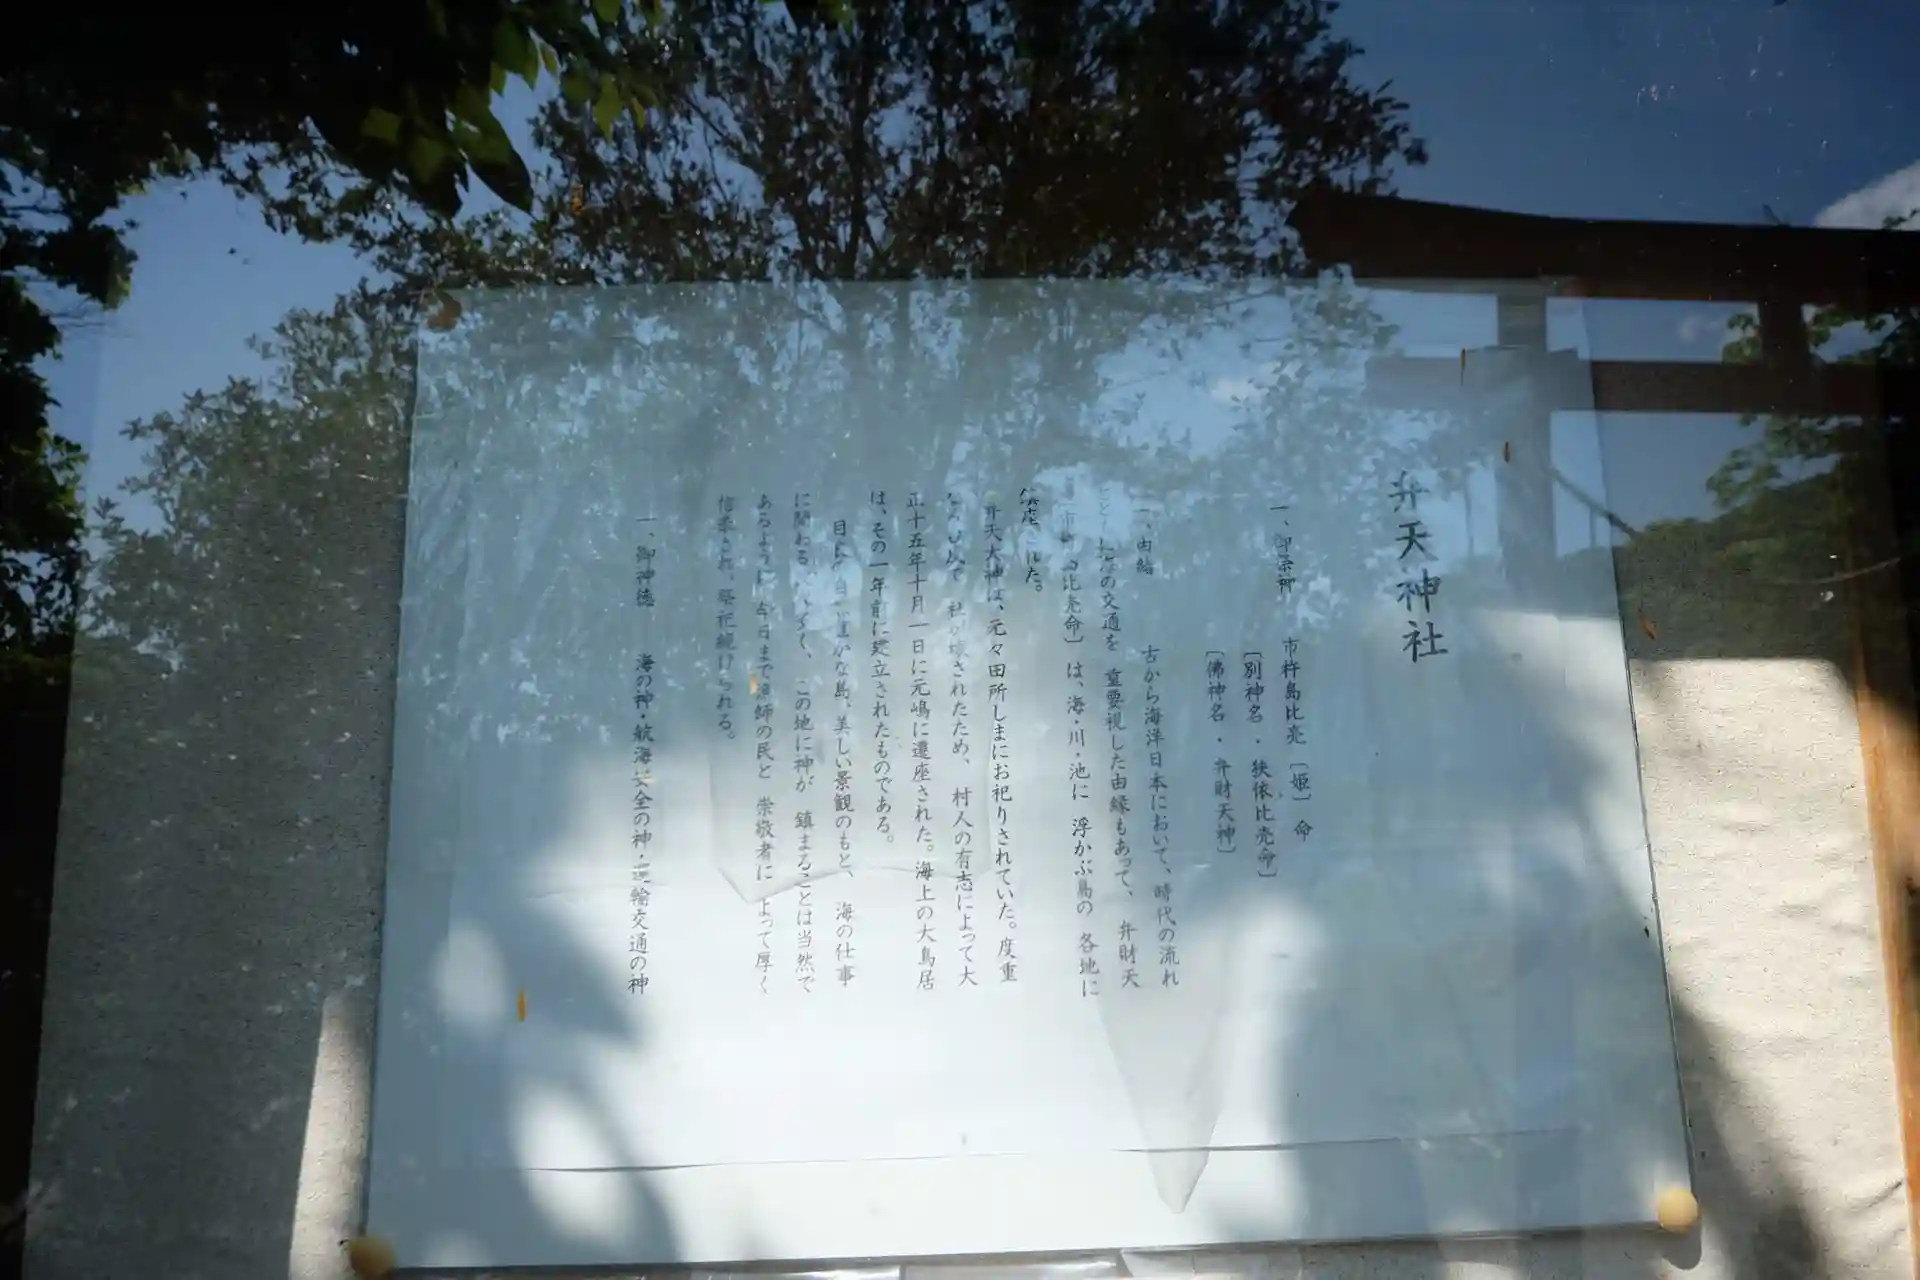 弁天神社
一、御祭神　市杵島比売〔姫〕命
〔別神名・狭依比売命〕
〔佛神名・弁財天神〕
一、由緒　古から海洋日本において、時代の流れ
の交通を　重要視した由縁もあって、　弁財天
比売命〕は、海・川・池に　浮かぶ島の　各地に
鎮座された。
弁天大神は、元々田所しまにお祀りされていた。度重
社が壊されたため、　村人の有志によって大
正十五年十月一日に元嶋に遷座された。海上の大鳥居
は、その一年前に建立されたものである。
かな島、美しい景観のもと、　海の仕事
に関わる　この地に神が　鎮まることは当然で
あるように　今日まで漁師の民と　崇敬者によって厚く
信奉され、祭祀続けられる。
一、御神徳　海の神・航海安全の神・運輸交通の神